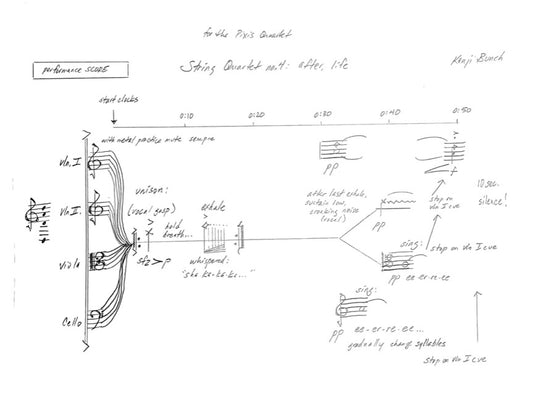 for the Pixis Quartet
String Quartet no.4: after, life
Kenji Bunch
performance SCORE
start clocks
0:10 0:20 0:30 0:40 0:50
with metal practice mute sempre
Vln. I
Vln II.
Viola
Cello
unison:
(vocal gasp)
hold
breath...
sfz > p
exhale
whispered:
"sha-ka-ka-ka..."
pp
after last exhale,
sustain low,
croaking noise
(vocal)
pp
stop on
vln I cue
10 sec.
silence!
sing:
pp ee-er-re-ee
stop on vln I cue
sing:
pp
ee-er-re-ee...
gradually change syllables
stop on vln I cue